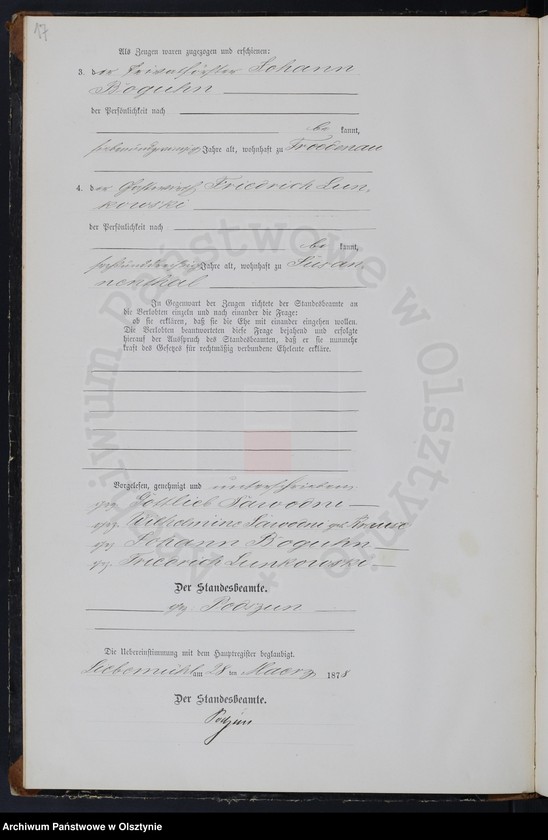 17
Als Zeugen waren zugezogen und erschienen:
3. der Privatförster Johann
Boguhn
der Persönlichkeit nach
be kannt,
siebenundzwanzig Jahre alt, wohnhaft zu Froedenau
4. der Friedrich Lun-
kowski
der Persönlichkeit nach
be kannt,
Jahre alt, wohnhaft zu
nenthal
In Gegenwart der Zeugen richtete der Standesbeamte an
die Verlobten einzeln und nach einander die Frage:
ob sie erklären, daß sie die Ehe mit einander eingehen wollen.
Die Verlobten beantworteten diese Frage bejahend und erfolgte
hierauf der Ausspruch des Standesbeamten, daß er sie nunmehr
kraft des Gesetzes für rechtmäßig verbundene Eheleute erkläre.
Vorgelesen, genehmigt und unterschrieben
gez. Gottlieb Sawodni
gez. Wilhelmine Sawodni geb.
gez. Johann Boguhn
gez. Friedrich Lunkowski
Der Standesbeamte.
gez. Podszun
Die Uebereinstimmung mit dem Hauptregister beglaubigt.
Liebemühl am 28 ten Maerz 1878
Der Standesbeamte.
Podszun
Archiwum Państwowe w Olsztynie
Archiwum Państwowe w Olsztynie